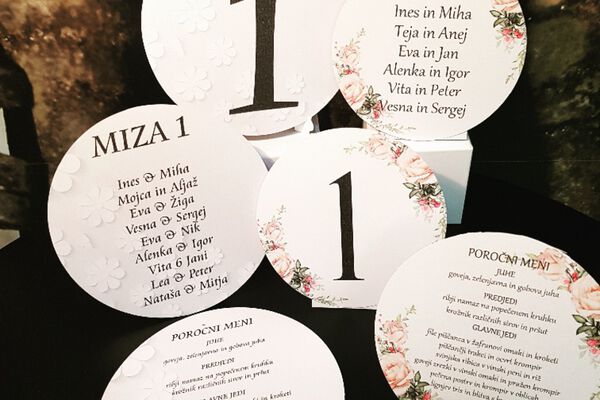 1
Ines in Miha
Teja in Anej
Eva in Jan
Alenka in Igor
Vita in Peter
Vesna in Sergej
MIZA 1
Ines & Miha
Mojca in Aljaž
Eva & Žiga
Vesna & Sergej
Eva & Nik
Alenka & Igor
Vita 6 Jani
Lea & Peter
Nataša & Mitja
1
POROČNI MENI
JUHE
goveja, zelenjavna in gobova juha
PREDJEDI
ribji namaz na popečenem kruhku
krožnik različnih sirov in pršut
GLAVNE JEDI
file piščanca v žafranovi omaki in kroketi
piščančji trakci in ocvrt krompir
svinjska ribica v vinski peni in riž
goveji zrezki v vinski omaki in pražen krompir
pečena postrv in krompir v oblicah
POROČNI MENI
JUHE
goveja, zelenjavna in gobova juha
PREDJEDI
ribji namaz na popečenem kruhku
krožnik različnih sirov in pršut
GLAVNE JEDI
omaki in kroketi